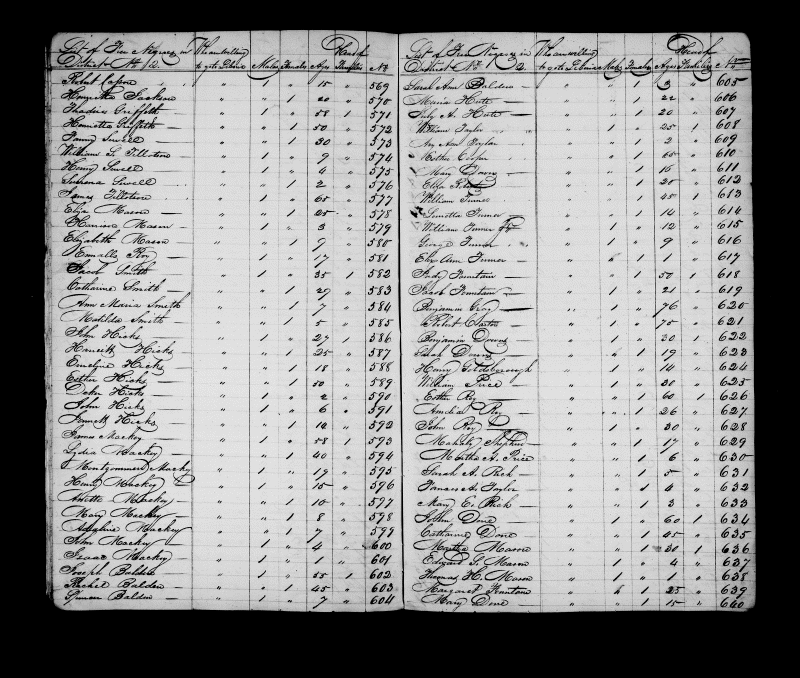 List of Free Negroes in District No 12. Who are willing to go to Liberia Males Females Ages Head of Families No
Robert " 1 " 15 " 569
Henrietta Jackson " " 1 20 " 570
Thadius Griffith " 1 " 58 1 571
Henrietta Griffith " " 1 50 " 572
Fanny Sewell " " 1 30 " 573
William S. Tillotson " 1 " 9 " 574
Henry Sewell " 1 " 4 " 575
Susana Sewell " " 1 2 " 576
James Tillotson " 1 " 65 " 577
Eliza Mason " " 1 25 " 578
Harrison Mason " 1 " 3 " 579
Elizabeth Mason " " 1 9 " 580
Roy " 1 " 17 " 581
Jacob Smith " 1 " 35 1 582
Catharine Smith " " 1 29 " 583
Ann Maria Smith " " 1 7 " 584
Matilda Smith " " 1 5 " 585
John Hicks " 1 " 27 1 586
Hicks " " 1 25 " 587
Eveline Hicks " 18 " 588
Esther Hicks " " 1 50 " 589
Hicks " 2 " 590
John Hicks " 1 " 6 " 591
Hicks " 12 " 592
James Mackey " 58 1 593
Lydia Mackey " " 1 40 " 594
Montgomery Mackey " 19 " 595
Henry Mackey " 1 " 15 " 596
Mackey " " 1 10 " 597
Mary Mackey " " 1 8 " 598
Adaline Mackey " " 1 7 " 599
John Mackey " 1 " 4 " 600
Isaac Mackey " 1 " 1 " 601
Joseph Balden " 1 " 55 1 602
Rachel Balden " " 1 45 " 603
Spencer Balden " 1 " 7 " 604
List of Free Negroes in District No 12 Who are willing to go to Liberia Males Females Ages Head of Families No
Sarah Ann Balden " " 1 3 " 605
Maria " " 1 22 " 606
July A. " " 1 20 " 607
William Taylor " 1 " 25 1 608
Ann Taylor " " 1 2 " 609
Esther Cooper " " 1 65 " 610
Mary " " 1 16 " 611
Eliza " " 1 25 " 612
William Turner " 1 " 45 1 613
Turner " " 1 14 " 614
William Turner Jr " 1 " 12 " 615
George Turner " 1 " 9 " 616
Eliz Ann Turner " " 1 1 " 617
Fountain " " 1 50 1 618
Jacob Fountain " 1 " 21 " 619
Benjamin Gray " 1 " 76 " 620
Robert " 1 " 75 " 621
Benjamin Downs " 30 1 622
Sarah Downs " " 1 19 " 623
Henry Goldsborough " 14 " 624
William Price " 1 " 30 " 625
Esther Roy " " 1 60 1 626
Amelia Roy " " 1 26 " 627
John Roy " 1 " 30 " 628
" " 1 17 " 629
Martha A. Price " " 1 6 " 630
Sarah A. Rich " " 1 5 " 631
Frances A. Taylor " " 1 4 " 632
Mary E. Rich " " 1 3 " 633
Done " 60 1 634
Catharine Done " " 1 45 " 635
Martha Mason " 30 1 636
Edward S. Mason " 4 " 637
Thomas H. Mason " 1 " 1 " 638
Margaret " " 1 25 " 639
Mary Done " " 1 15 " 640